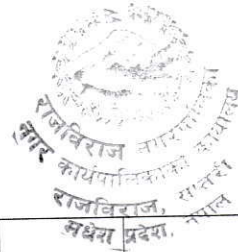 राजविराज नगरपालिका
नगर कार्यपालिकाको कार्यालय
राजविराज, सप्तरी
मधेश प्रदेश, नेपाल